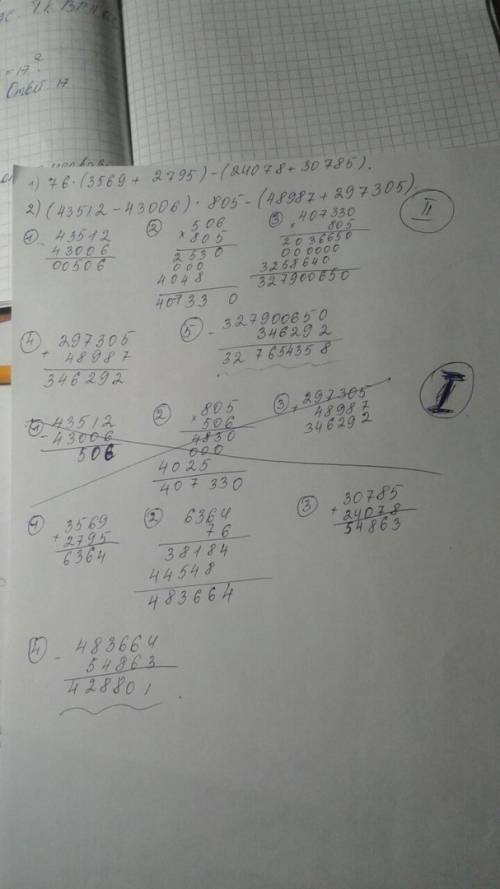 = 17²
Ответ 17
1) 76·(3569 + 2795) - (24078 + 30785).
2) (43512 - 43006) · 805 - (48987 + 297305).
II
1 - 43512
43006
00506
2 × 506
805
2530
000
4048
407330
3 407330
× 805
2036650
000000
3258640
327900650
4 + 297305
48987
346292
5 - 327900650
346292
327654358
I
1 - 43512
43006
506
2 × 805
506
4830
000
4025
407330
3 + 297305
48987
346292
1 + 3569
2795
6364
2 6364
76
38184
44548
483664
3 + 30785
24078
54863
4 - 483664
54863
428801.